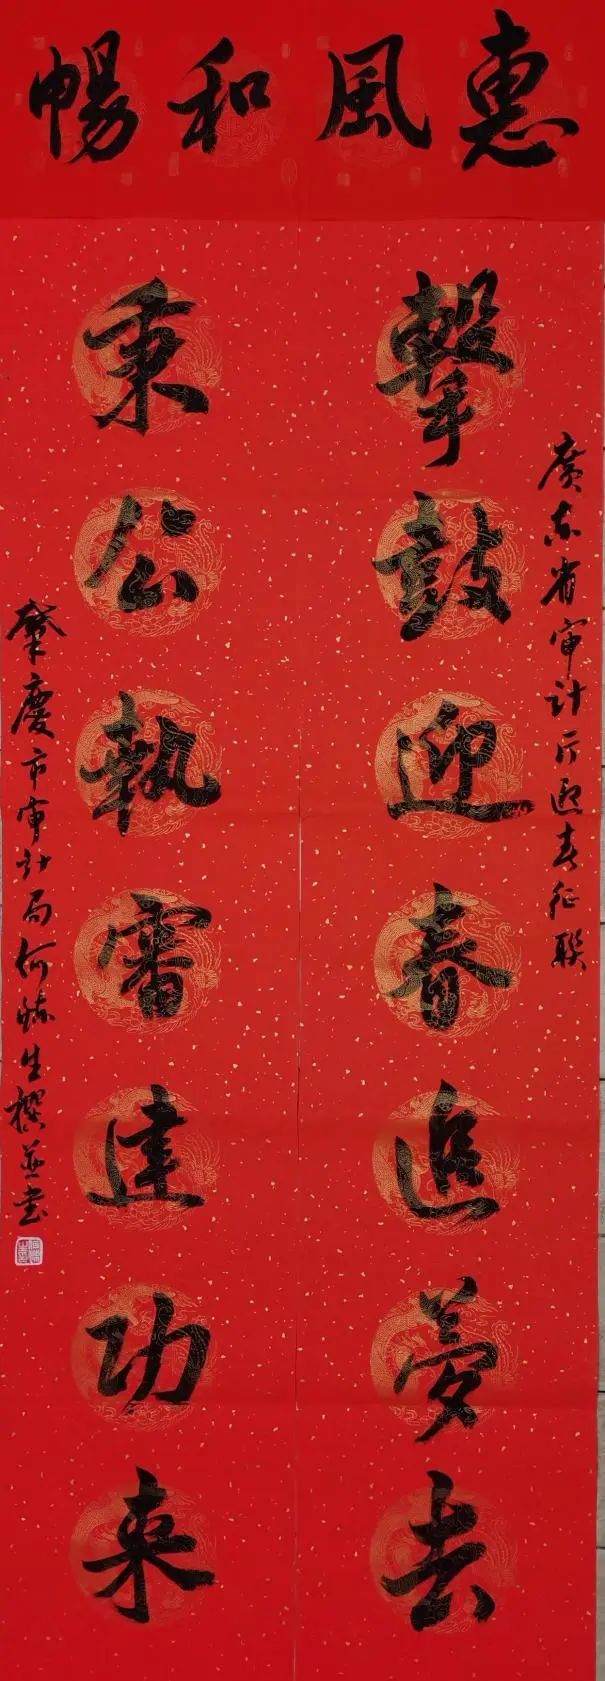 惠風和暢
擊鼓迎春追夢去
秉公執審建功来
廣东省审计厅迎春征联
肇慶市审计局何生撰並书